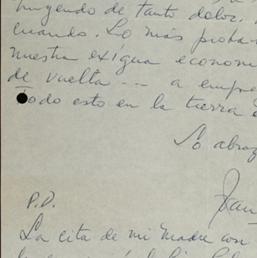 huyendo de tanto dolor.
cuando. Lo más proba-
nuestra exigua econom
de vuelta -- a empe
Todo esto en la tierra
Lo abraz
P.D.
La cita de mi Madre con